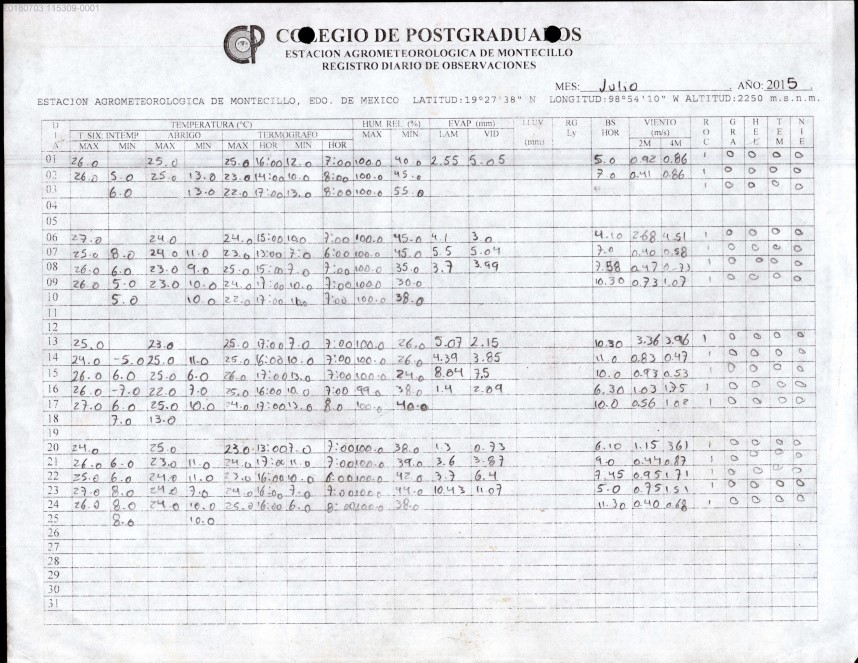 20180703 115309-0001
COLEGIO DE POSTGRADUADOS
ESTACION AGROMETEOROLOGICA DE MONTECILLO
REGISTRO DIARIO DE OBSERVACIONES
MES: Julio AÑO: 2015
ESTACION AGROMETEOROLOGICA DE MONTECILLO, EDO. DE MEXICO LATITUD:19°27'38" N LONGITUD:98°54'10" W ALTITUD:2250 m.s.n.m.
D TEMPERATURA (°C) HUM REL (%) EVAP (mm) LLUV RG BS VIENTO R G H T N
I T SIX INTEMP ABRIGO TERMOGRAFO MAX MIN LAM VID (mm) Ly HOR (m/s) O R E E I
A MAX MIN MAX MIN MAX HOR MIN HOR 2M 4M C A M E
01 26.0 25.0 25.0 16:00 12.0 7:00 100.0 40.0 2.55 5.05 5.0 0.92 0.86 1 0 0 0 0
02 26.0 5.0 25.0 13.0 23.0 14:00 10.0 8:00 100.0 45.0 7.0 0.41 0.86 1 0 0 0 0
03 6.0 13.0 22.0 17:00 13.0 8:00 100.0 55.0 1 0 0 0 0
04
05
06 27.0 24.0 24.0 15:00 10.0 7:00 100.0 45.0 4.1 3.0 4.10 2.68 4.51 1 0 0 0 0
07 25.0 8.0 24.0 11.0 23.0 13:00 7.0 6:00 100.0 45.0 5.5 5.04 7.0 0.40 0.58 1 0 0 0 0
08 26.0 6.0 23.0 9.0 25.0 15:00 7.0 7:00 100.0 35.0 3.7 3.99 7.58 0.47 0.73 1 0 0 0 0
09 26.0 5.0 23.0 10.0 24.0 17:00 10.0 7:00 100.0 30.0 10.30 0.73 1.07 1 0 0 0 0
10 5.0 10.0 22.0 17:00 7:00 100.0 38.0
11
12
13 25.0 23.0 25.0 17:00 7.0 7:00 100.0 26.0 5.07 2.15 10.30 3.36 3.96 1 0 0 0 0
14 24.0 -5.0 25.0 11.0 25.0 16:00 10.0 7:00 100.0 26.0 4.39 3.85 11.0 0.83 0.47 1 0 0 0 0
15 26.0 6.0 25.0 6.0 26.0 17:00 13.0 7:00 100.0 24.0 8.04 7.5 10.0 0.93 0.53 1 0 0 0 0
16 26.0 -7.0 22.0 7.0 25.0 16:00 10.0 7:00 99.0 38.0 1.4 2.09 6.30 1.03 1.75 1 0 0 0 0
17 27.0 6.0 25.0 10.0 24.0 17:00 13.0 8.0 100.0 40.0 10.0 0.56 1.02 1 0 0 0 0
18 7.0 13.0
19
20 24.0 25.0 23.0 13:00 7.0 7:00 100.0 38.0 1.3 0.73 6.10 1.15 3.61 1 0 0 0 0
21 26.0 6.0 23.0 11.0 24.0 17:00 11.0 7:00 100.0 39.0 3.6 3.87 9.0 0.44 0.87 1 0 0 0 0
22 25.0 6.0 24.0 11.0 23.0 16:00 10.0 6:00 100.0 42.0 3.7 6.4 7.45 0.95 1.71 1 0 0 0 0
23 27.0 8.0 24.0 7.0 24.0 16:00 7.0 7:00 100.0 44.0 10.43 11.07 5.0 0.75 1.51 1 0 0 0 0
24 26.0 8.0 24.0 10.0 25.0 16:00 6.0 8:00 100.0 38.0 11.30 0.40 0.68 1 0 0 0 0
25 8.0 10.0
26
27
28
29
30
31